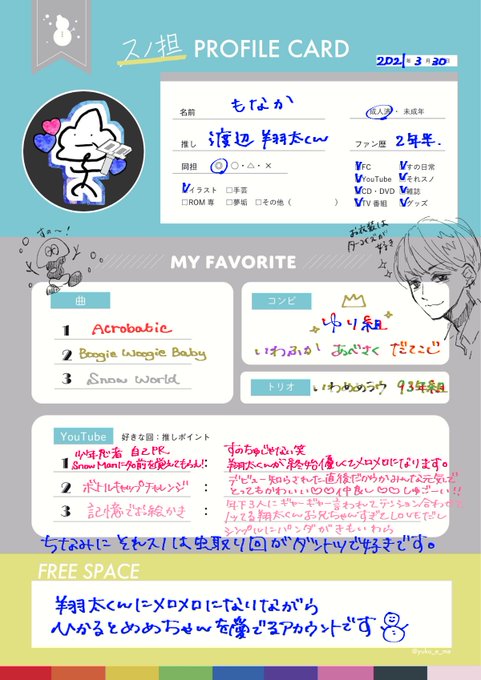 スノ担 PROFILE CARD
2021年 3月 30日
名前 もなか
成人済・未成年
推し 渡辺 翔太くん
ファン歴 2年半.
同担 ◎・○・△・×
イラスト □手芸
□ROM専 □夢垢 □その他( )
FC すの日常
YouTube それスノ
CD・DVD 雑誌
TV番組 グッズ
すの〜!
お衣装は
ターコイズが
好き
MY FAVORITE
曲
1 Acrobatic
2 Boogie Woogie Baby
3 Snow World
コンビ
ゆり組
いわふか あべさく だてこじ
トリオ
いわめめラウ 93年組
YouTube 好きな回:推しポイント
1 自己PR
Snow Manに名前を覚えてもらう!:
すのちゅーぶじゃない笑
翔太くんが終始優しくてメロメロになります。
2 ボトルキャップチャレンジ :
デビュー知らされた直後だからかみんな元気で
とってもかわいい♡♡仲良し♡♡しゅごーい!!
3 記憶でお絵かき :
年下3人にギャーギャー言われてテンション合わせて
ノッてる翔太くんお兄ちゃんすぎてLOVEだし
シンプルにパンダがきもいわら
ちなみにそれスノは虫取り回がダントツで好きです。
FREE SPACE
翔太くんにメロメロになりながら
ひかるとめめちゃんを愛でるアカウントです
@yuku_e_me